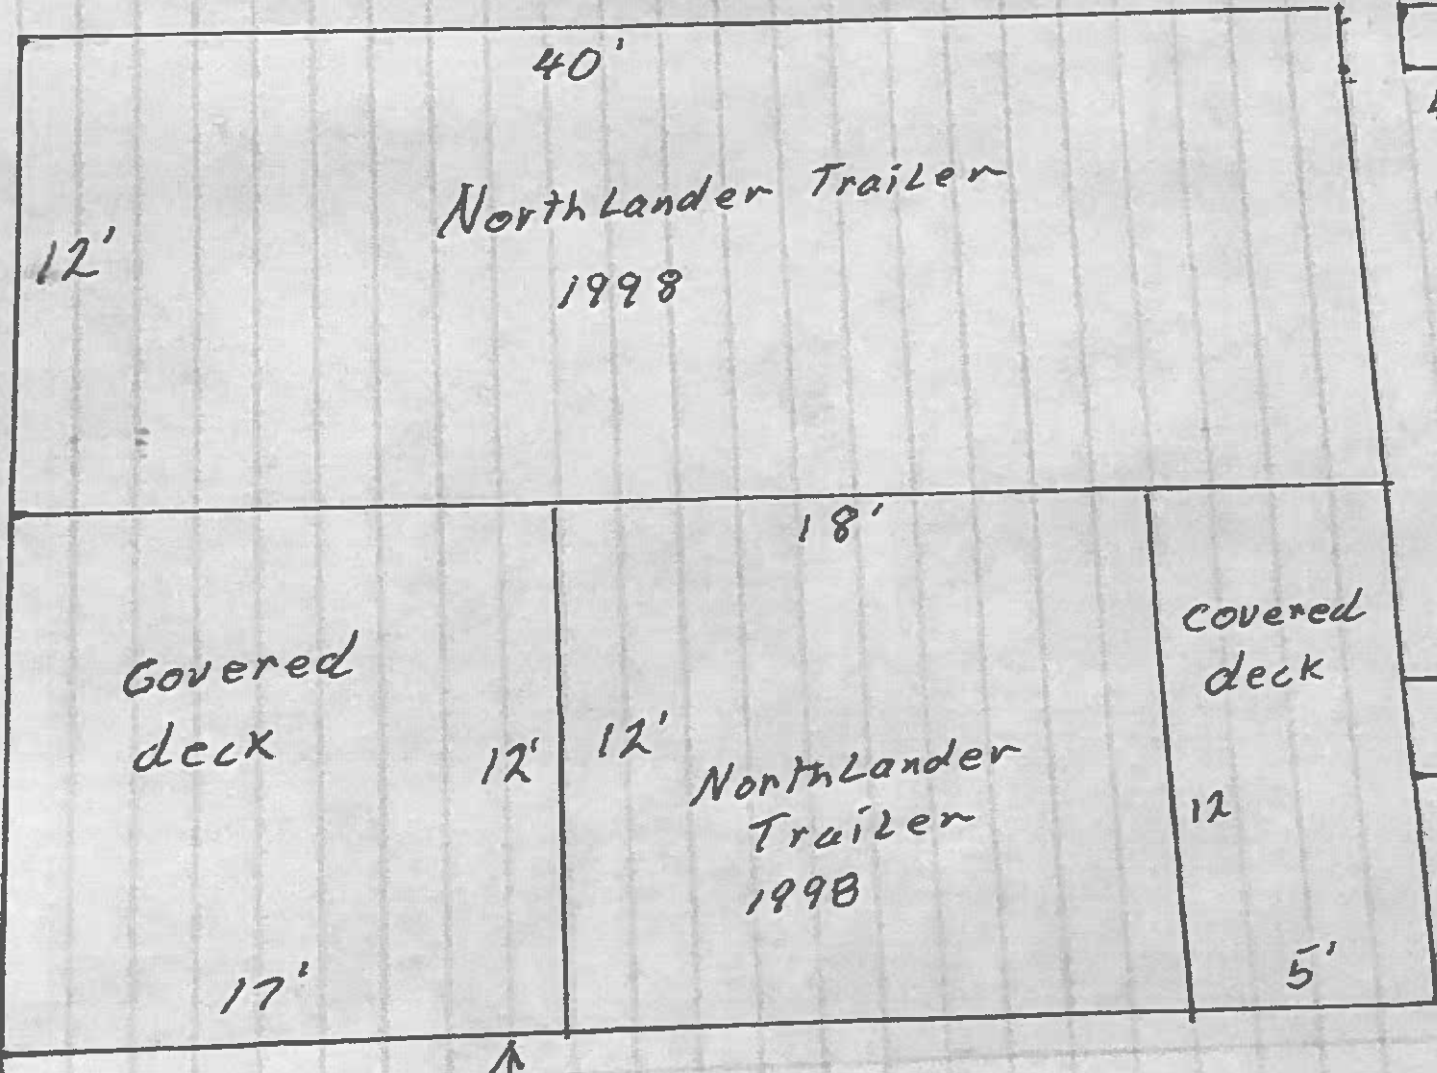 40'
NorthLander Trailer
12'
1998
18'
Covered
deck
12'
12'
NorthLander
Trailer
1998
covered
deck
12
17'
5'